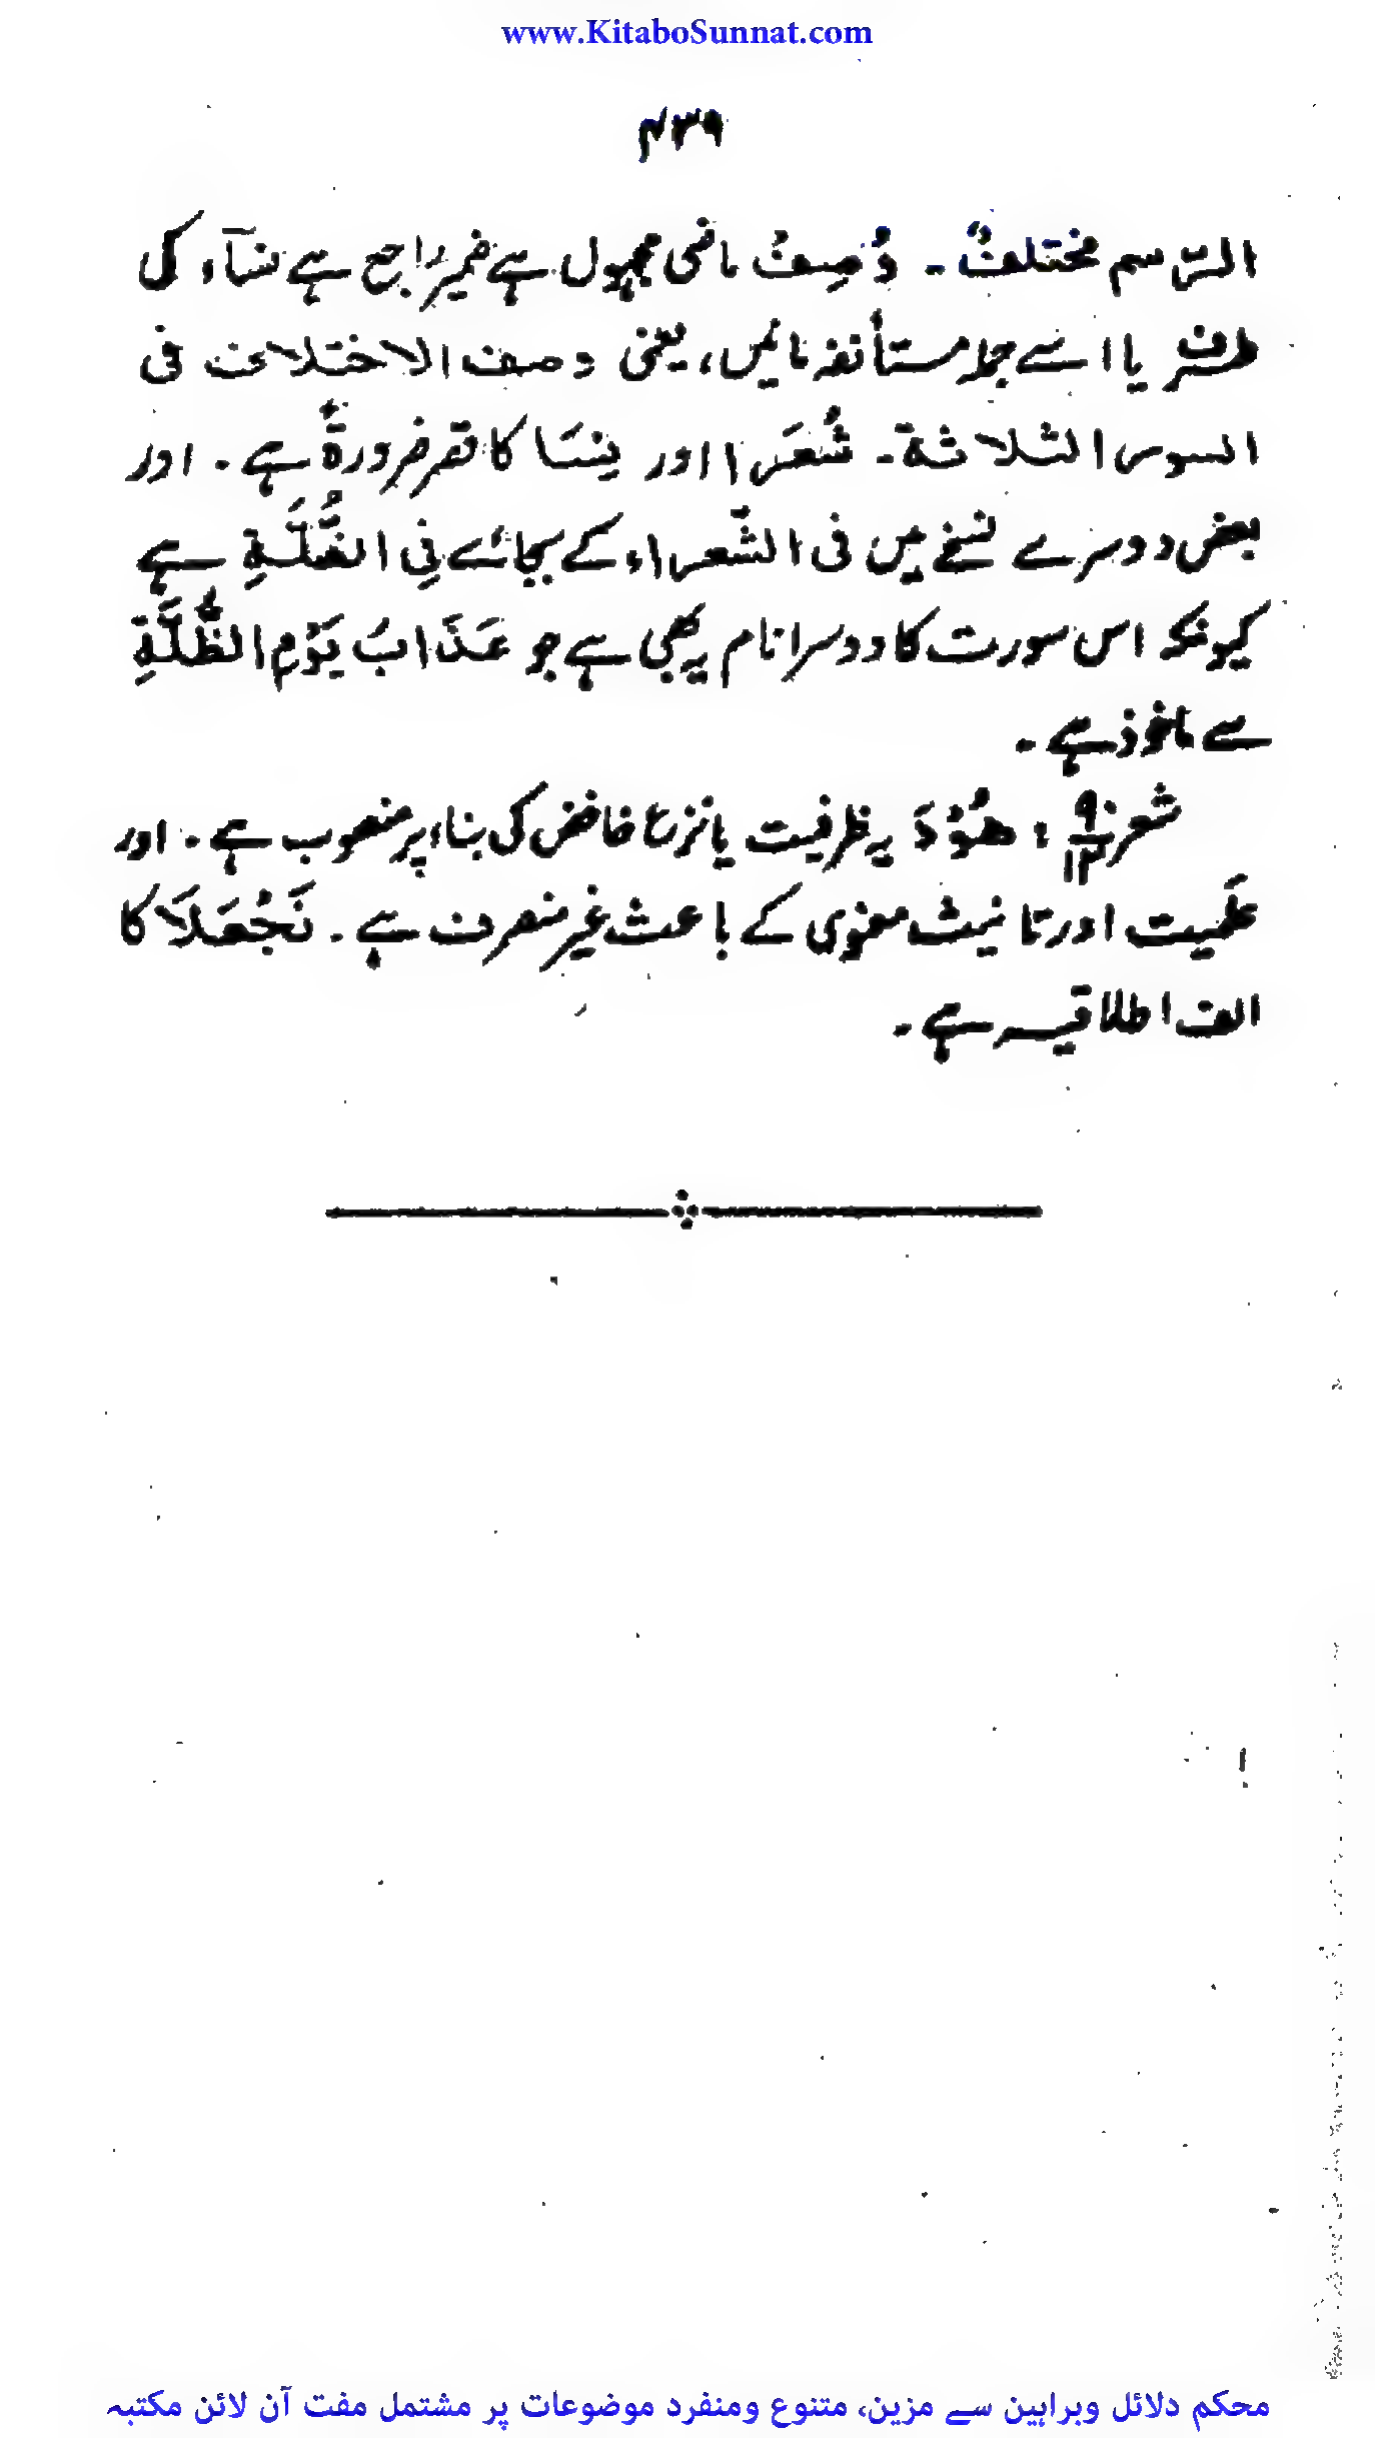 www.KitaboSunnat.com
۴۳۹
الرّسم مختلفٌ ۔ وُصِفُ ماضی مجہول ہے ضمیر راجع ہے نسآء کی
طرف یا اسے جملہ مستأنفہ مانیں، یعنی وصف الاختلاف فی
السور الثلاثة ۔ شُعَرا اور نِسَا کا قصر ضرورةً ہے ۔ اور
بعض دوسرے نسخے میں فی الشّعراء کے بجائے فِی الظُّلَّةِ ہے
کیونکہ اس سورت کا دوسرا نام یہ بھی ہے جو عَذَابُ یَوْمِ الظُّلَّةِ
سے ماخوذ ہے ۔
شعر ۹/۱۲ : ھُوْدَ یہ ظرفیت یا نزع خافض کی بناء پر منصوب ہے ۔ اور
علَمیت اور تانیث معنوی کے باعث غیر منصرف ہے ۔ نَجْعَلَا کا
الف اطلاقیہ ہے ۔
محکم دلائل وبراہین سے مزین، متنوع ومنفرد موضوعات پر مشتمل مفت آن لائن مکتبہ